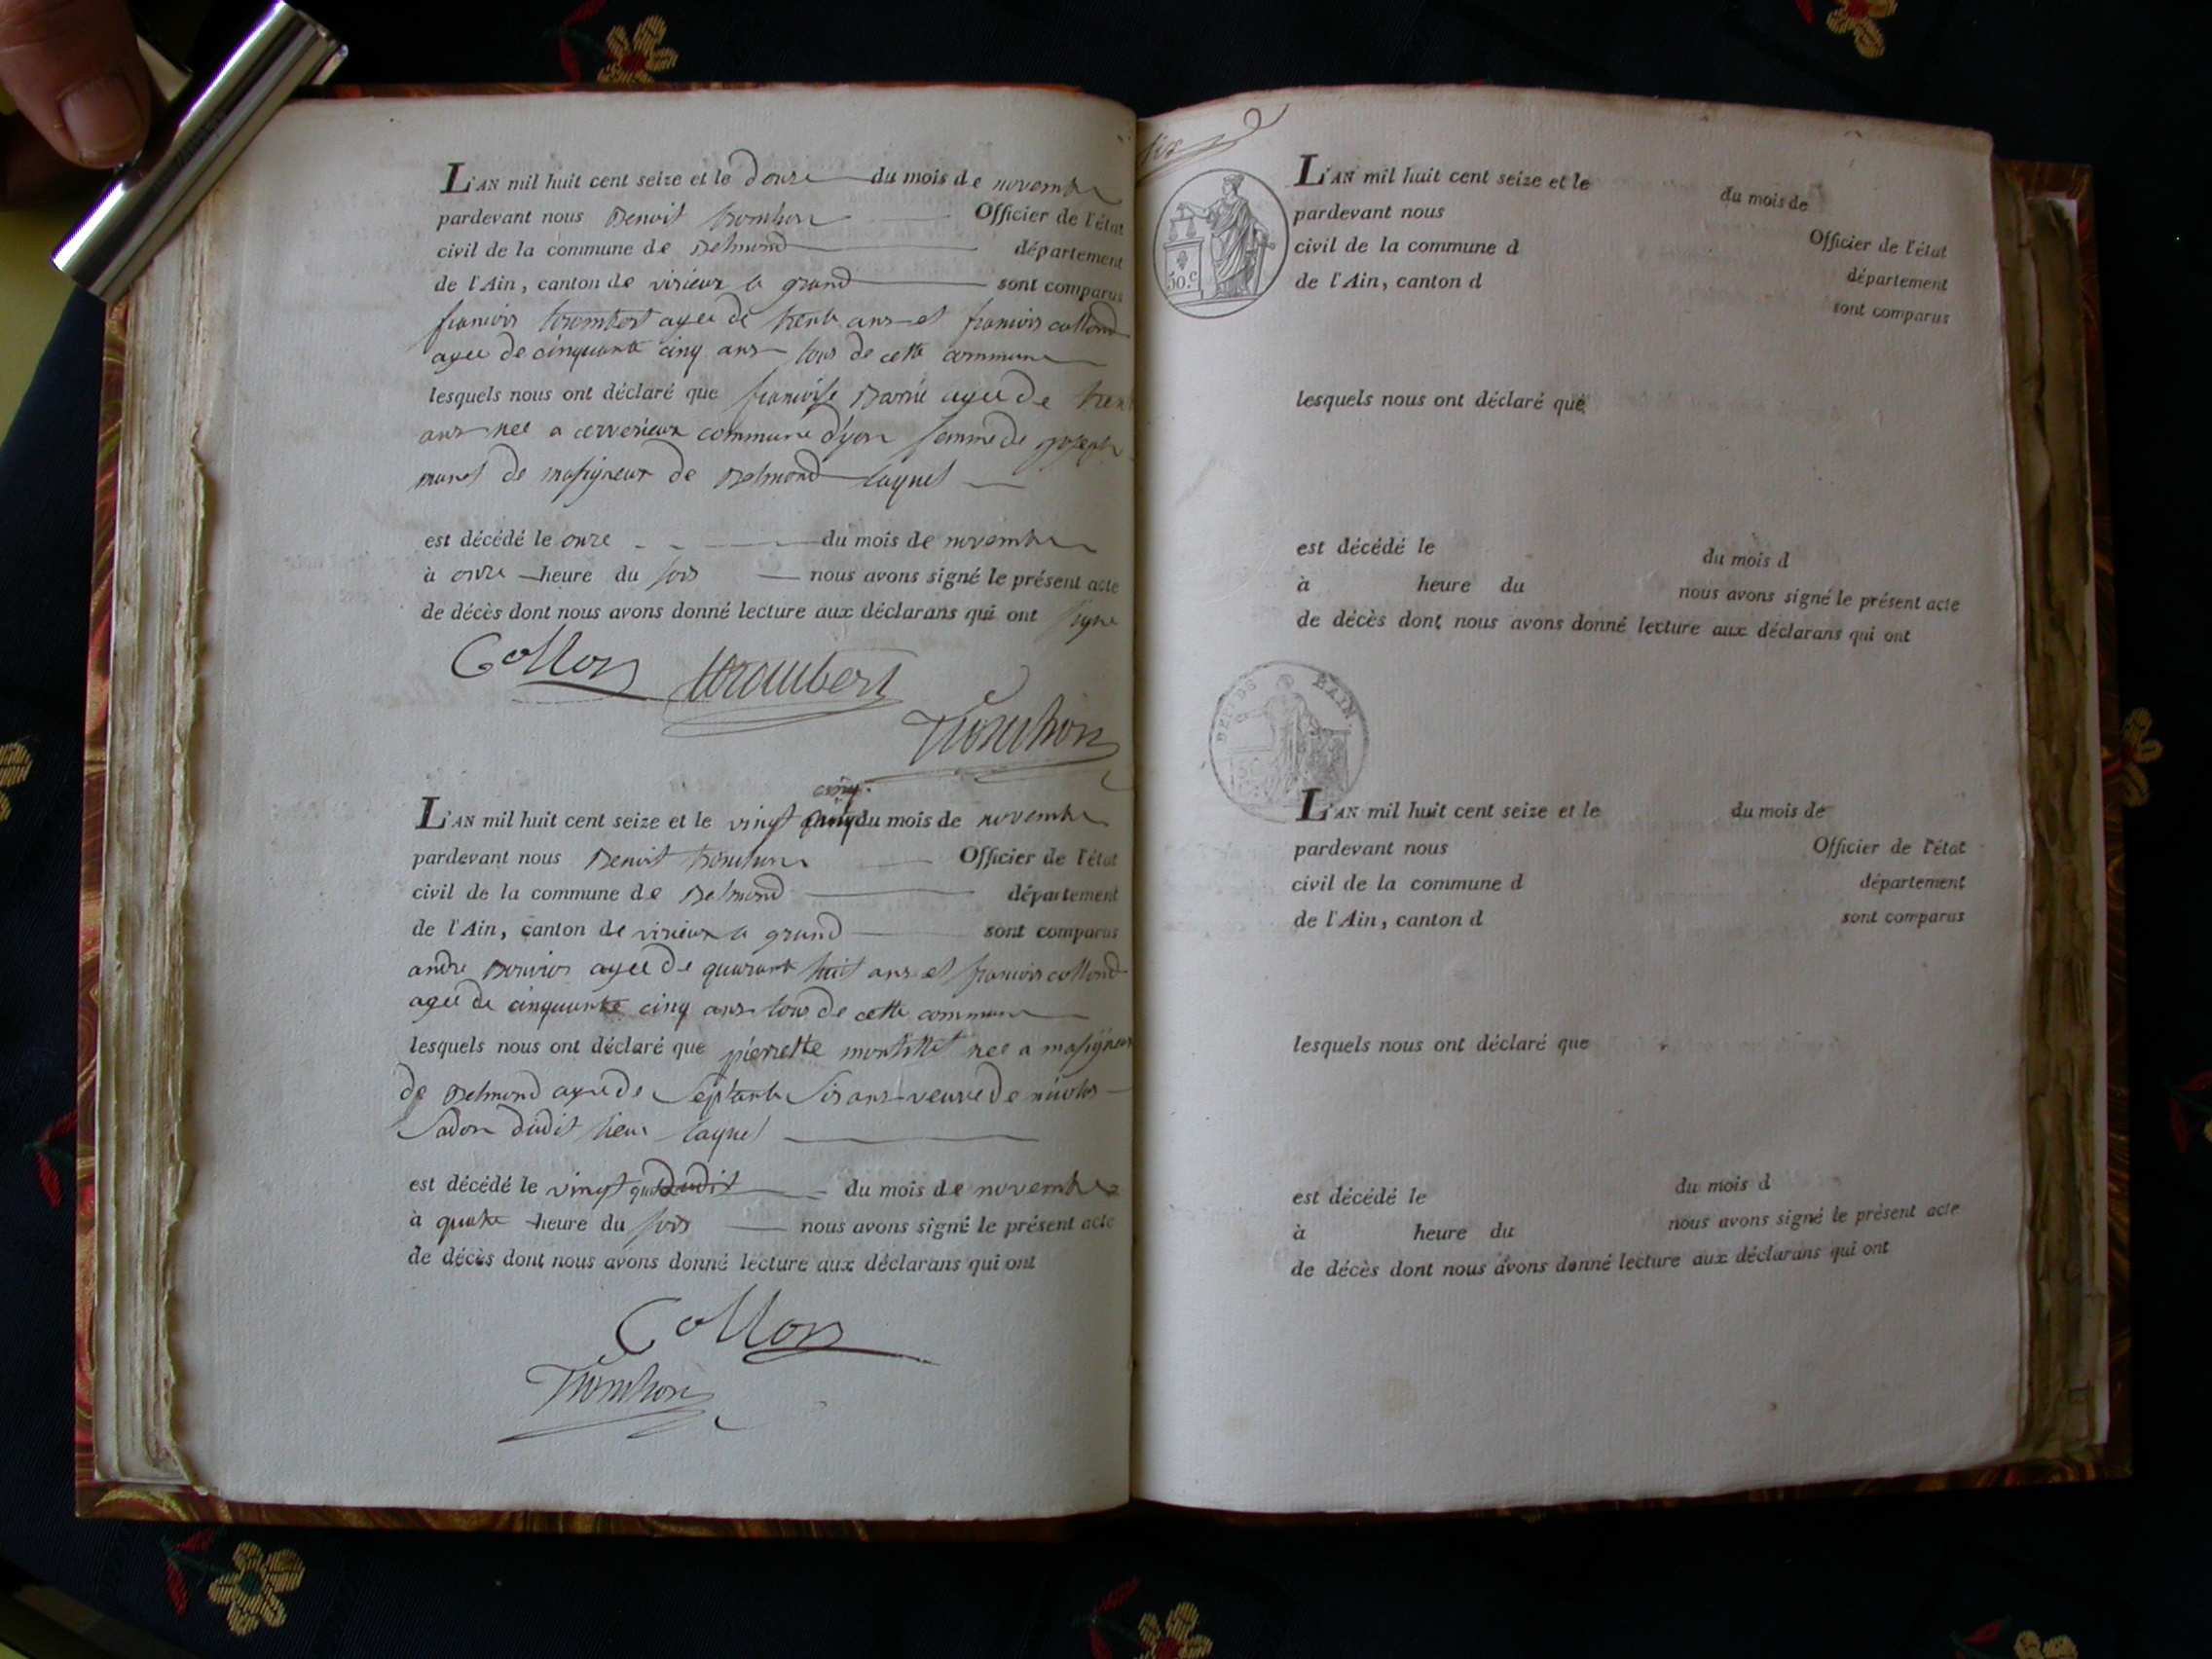 L'AN mil huit cent seize et le douze du mois de novembre
pardevant nous Benoit Officier de l'état
civil de la commune de Belmond département
de l'Ain, canton de virieux le grand sont comparus
francois trombert agee de trente ans et francois collond
agee de cinquante cinq ans tous de cette commune
lesquels nous ont déclaré que francoise agee de
ans nee a cerverieux commune d'yon femme de joseph
de masigneux de Belmond laquel
est décédé le onze du mois de novembre
à onze heure du soir nous avons signé le présent acte
de décès dont nous avons donné lecture aux déclarans qui ont signe
Collon trombert
L'AN mil huit cent seize et le vingt cinq du mois de novembre
pardevant nous Benoit Officier de l'état
civil de la commune de Belmond département
de l'Ain, canton de virieux le grand sont comparus
andre Bouvier agee de quarante huit ans et francois collond
agee de cinquante cinq ans tous de cette commune
lesquels nous ont déclaré que pierrette montillet nee a masigneux
de Belmond agee de septante six ans veuve de nicolas
dudit lieu laquel
est décédé le vingt dudit du mois de novembre
à quatre heure du soir nous avons signé le présent acte
de décès dont nous avons donné lecture aux déclarans qui ont
Collon
six
50.c
L'AN mil huit cent seize et le du mois de
pardevant nous Officier de l'état
civil de la commune d département
de l'Ain, canton d sont comparus
lesquels nous ont déclaré que
est décédé le du mois d
à heure du nous avons signé le présent acte
de décès dont nous avons donné lecture aux déclarans qui ont
L'AN mil huit cent seize et le du mois de
pardevant nous Officier de l'état
civil de la commune d département
de l'Ain, canton d sont comparus
lesquels nous ont déclaré que
est décédé le du mois d
à heure du nous avons signé le présent acte
de décès dont nous avons donné lecture aux déclarans qui ont